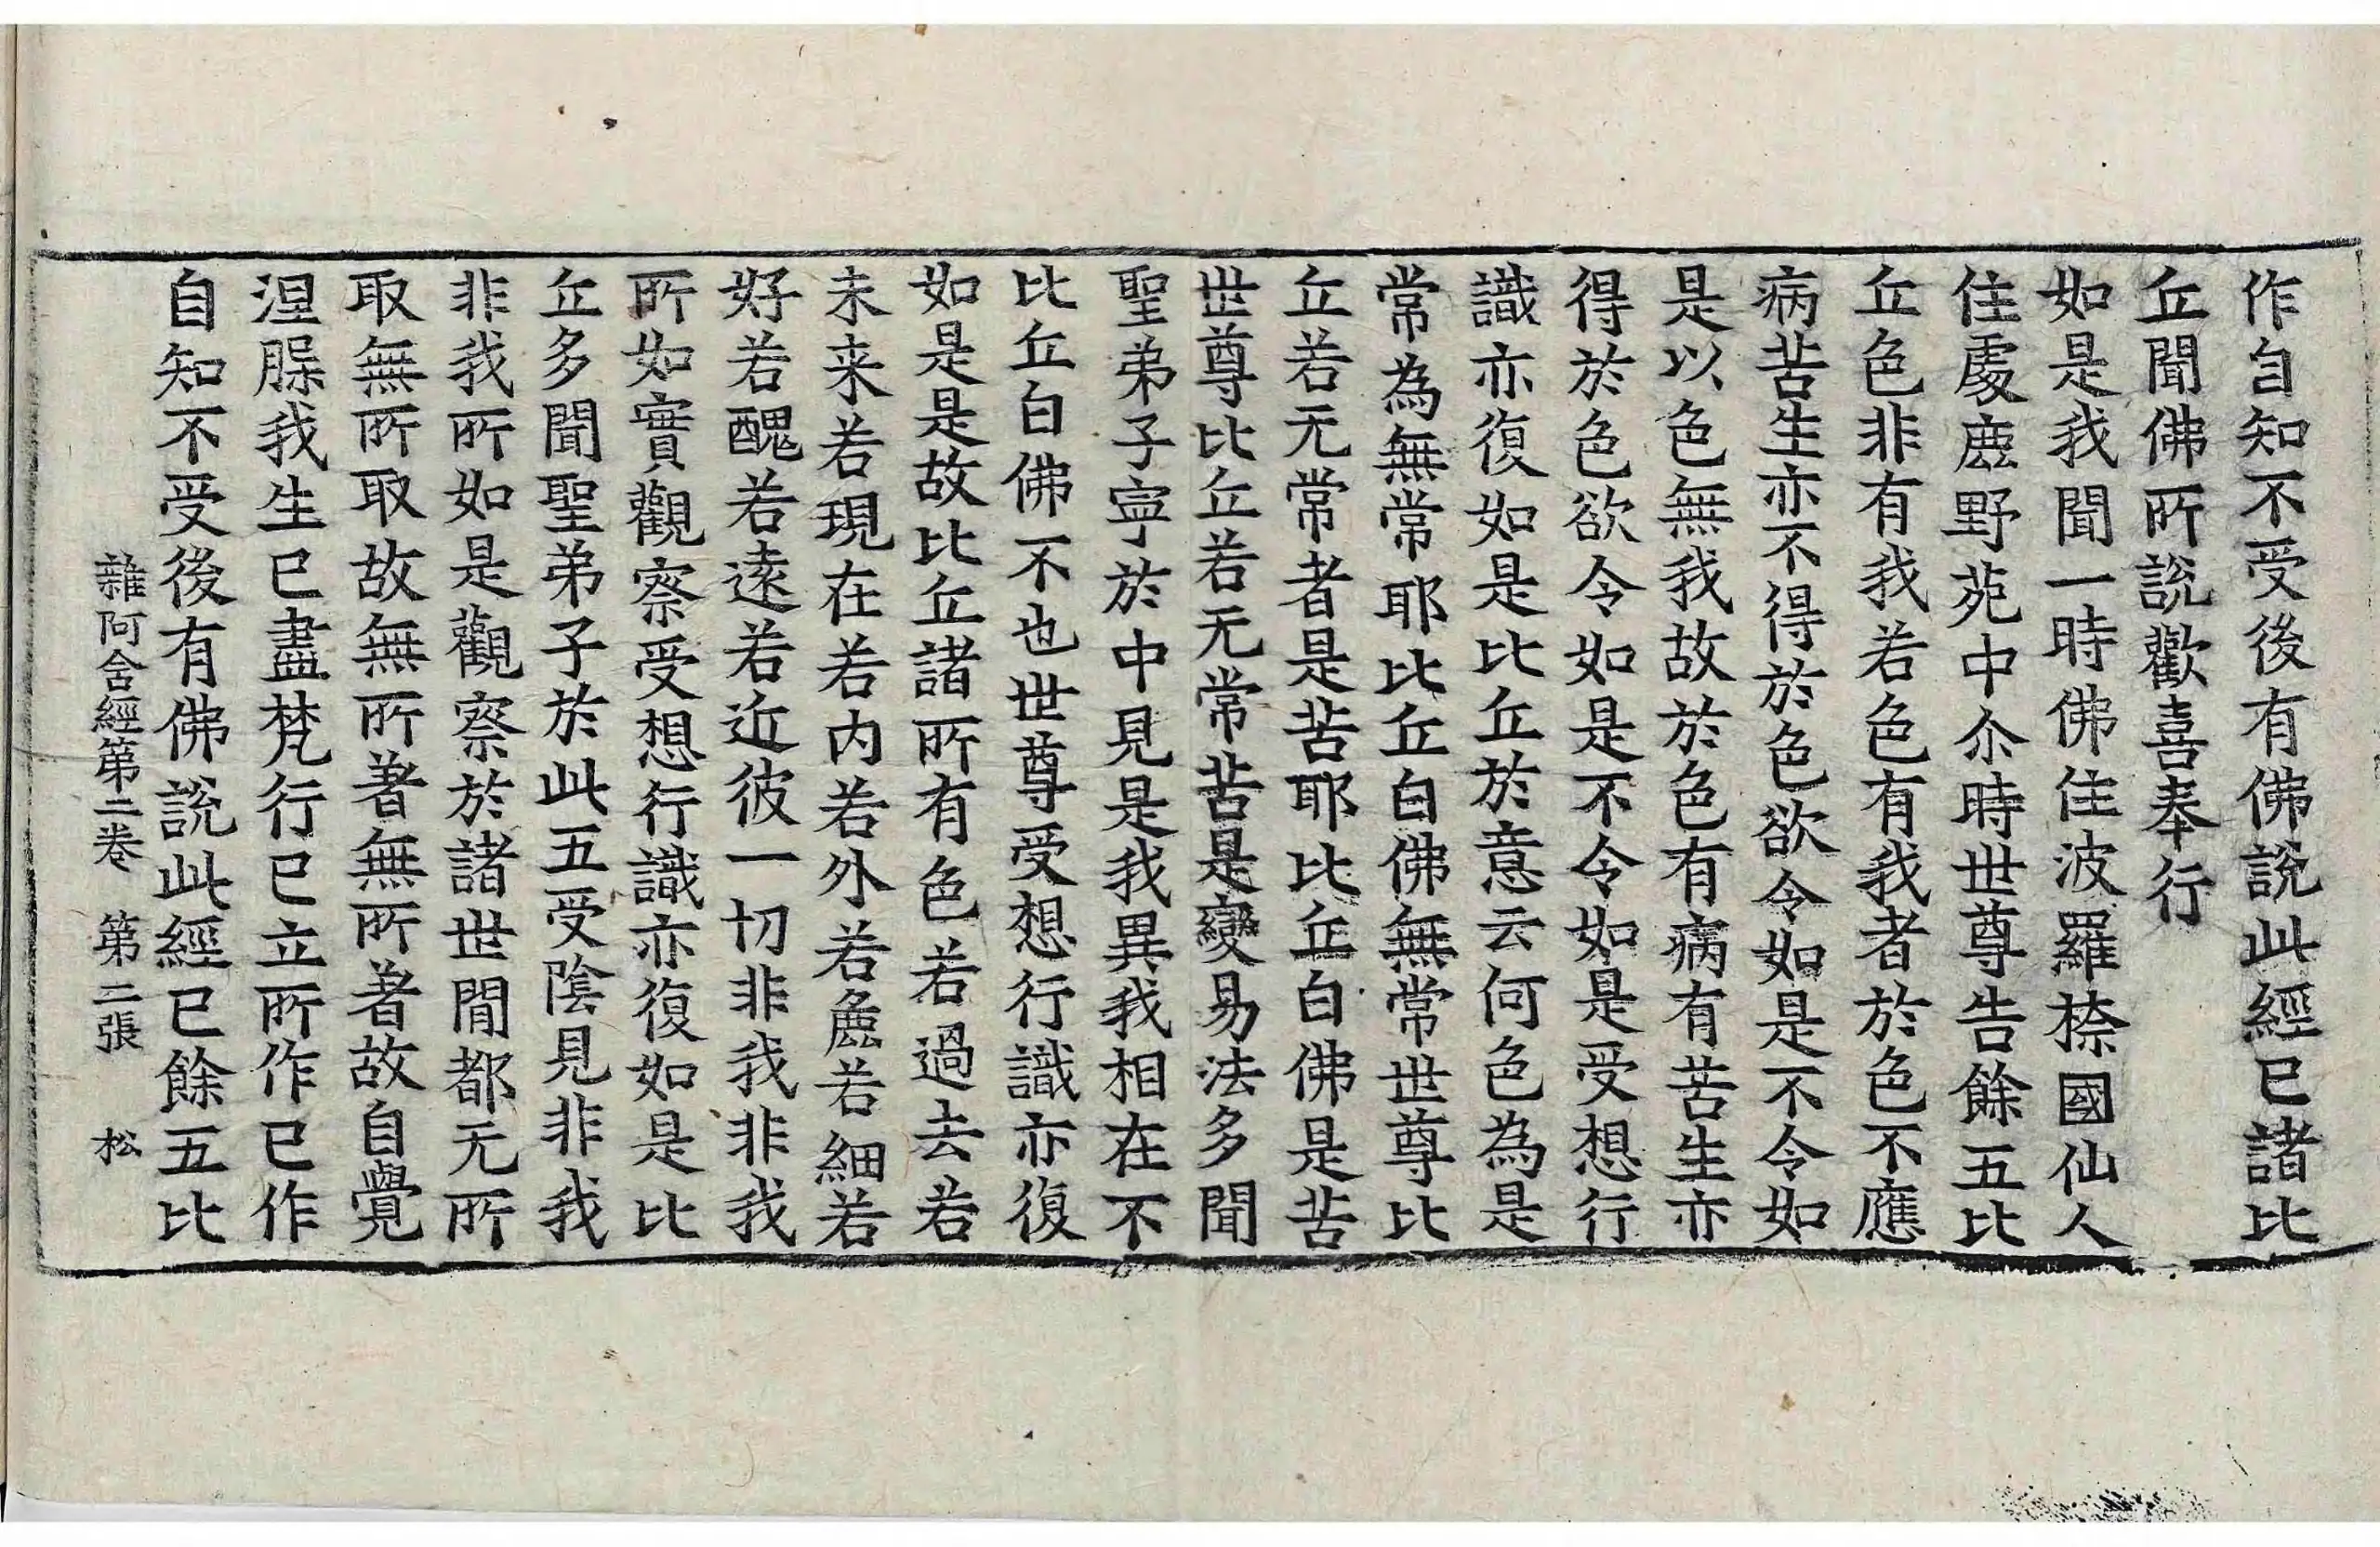 作自知不受後有佛說此經已諸比
丘聞佛所說歡喜奉行
如是我聞一時佛住波羅㮈國仙人
住處鹿野苑中尒時世尊告餘五比
丘色非有我若色有我者於色不應
病苦生亦不得於色欲令如是不令如
是以色無我故於色有病有苦生亦
得於色欲令如是不令如是受想行
識亦復如是比丘於意云何色為是
常為無常耶比丘白佛無常世尊比
丘若无常者是苦耶比丘白佛是苦
世尊比丘若无常苦是變易法多聞
聖弟子寧於中見是我異我相在不
比丘白佛不也世尊受想行識亦復
如是是故比丘諸所有色若過去若
未来若現在若内若外若麁若細若
好若醜若遠若近彼一切非我非我
所如實觀察受想行識亦復如是比
丘多聞聖弟子於此五受陰見非我
非我所如是觀察於諸世間都无所
取無所取故無所著無所著故自覺
涅槃我生已盡梵行已立所作已作
自知不受後有佛說此經已餘五比
雜阿含經第二卷 第二張 松